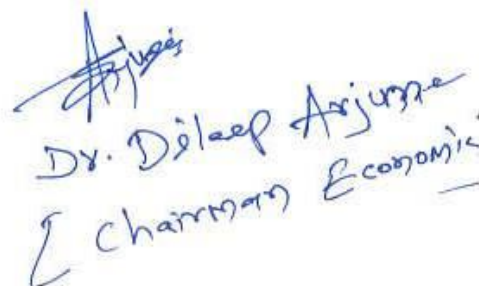 Arjune
Dr. Dileep Arjune
[ Chairman Economic